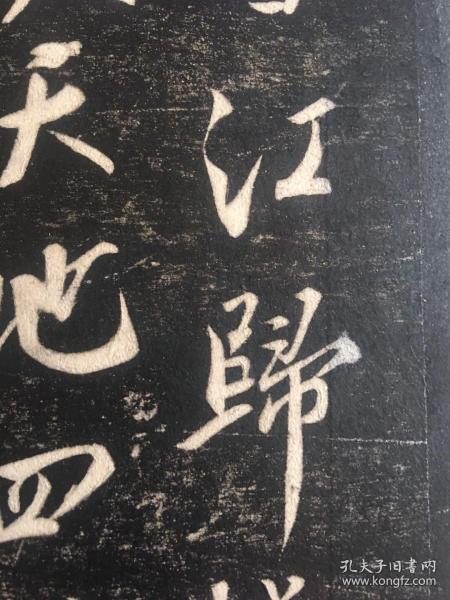 江歸
天地四
孔夫子旧书网
www.kongfz.com